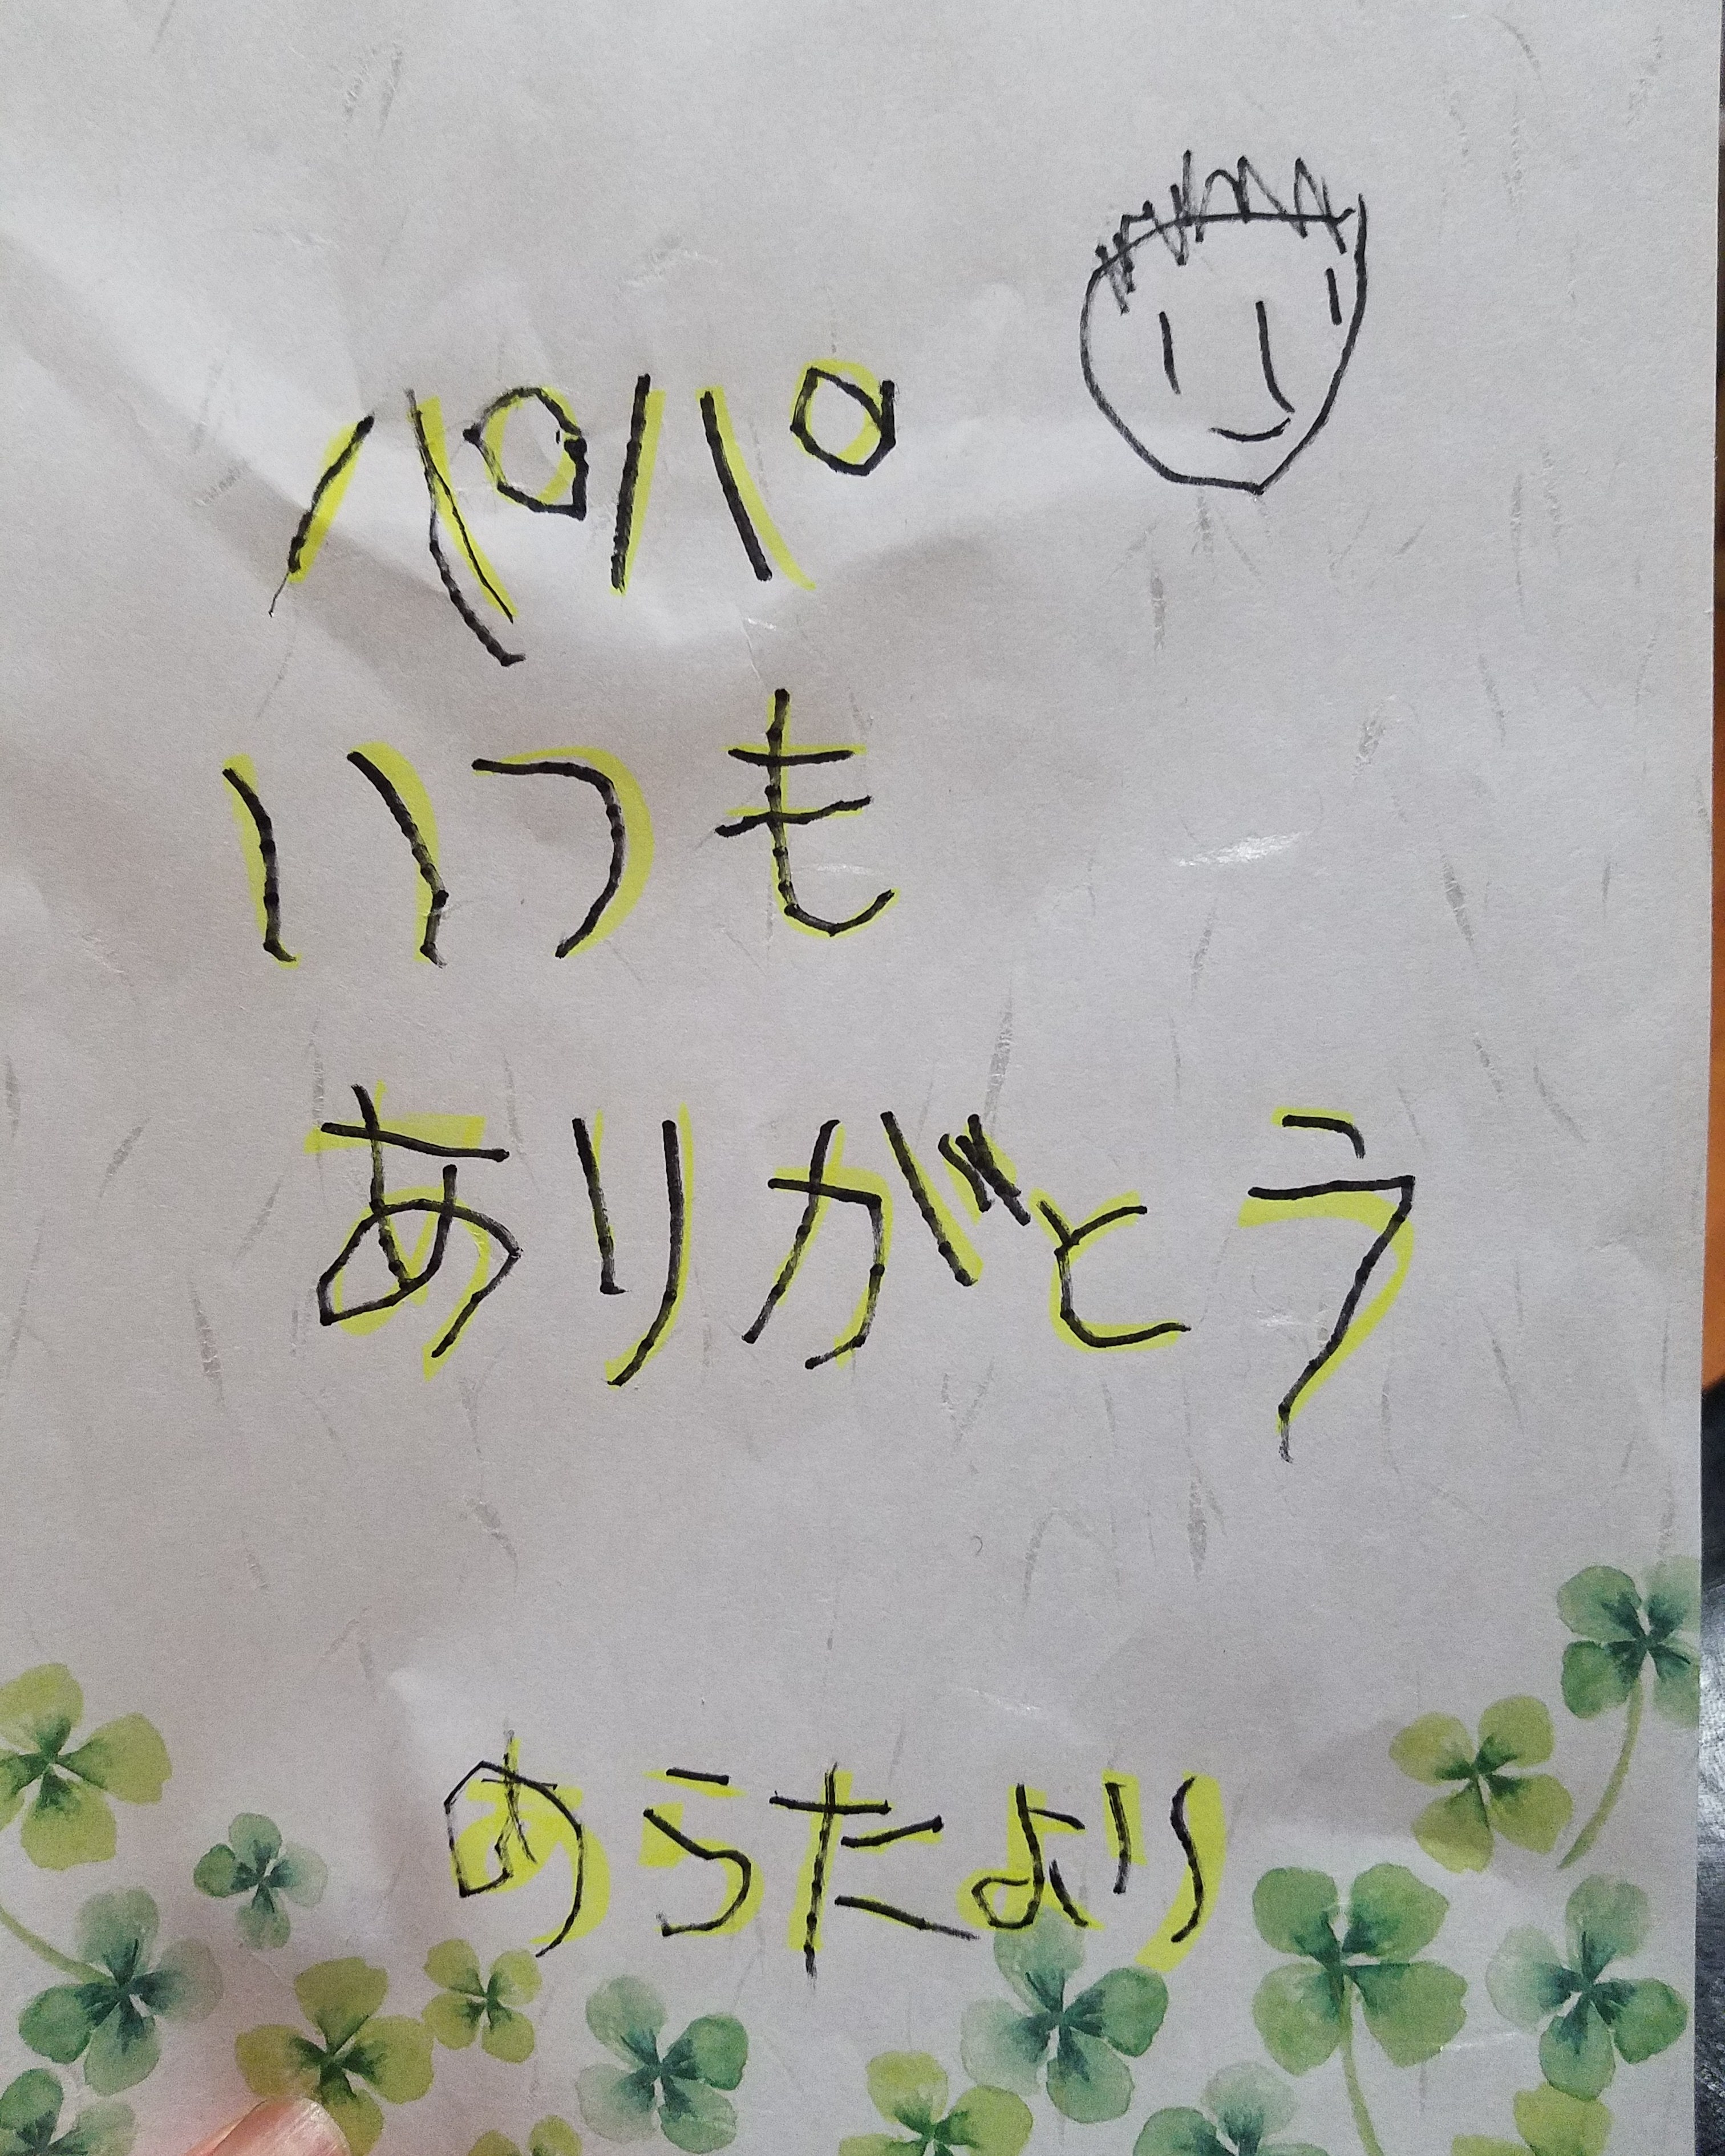 パパ
いつも
ありがとう
あらたより